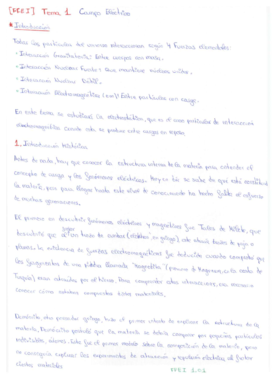 [FFEI] Tema 1. Campo Eléctrico
Introducción
Todas las partículas del universo interaccionan según 4 fuerzas elementales:
· Interacción Gravitatoria: Entre cuerpos con masa.
· Interacción Nuclear Fuerte: Para mantener núcleos
· Interacción Nuclear Débil.
· Interacción Electromagnética: Entre partículas con carga.
En este tema se estudiará la electrostática, que es el caso particular de interacción
electromagnética cuando esta se produce entre cargas en reposo.
1. Introducción Histórica
Antes de nada, hay que conocer la estructura interna de la materia para entender el
concepto de carga y los fenómenos eléctricos. Hoy en día se sabe de qué está constituida
la materia, pero para llegar hasta este nivel de conocimiento ha hecho falta el esfuerzo
de muchas generaciones.
El primero en describir fenómenos eléctricos y magnéticos fue Tales de Mileto, que
descubrió que al frotar un trozo de ámbar (elektron en griego) este atraía trozos de paja o
plumas. la existencia de fuerzas electromagnéticas fue deducida cuando comprobó que
los fragmentos de una piedra llamada "magnetita" (procede de Magnesia, en la costa de
Turquía) eran atraídos por el hierro. Para comprender estas interacciones, era necesario
conocer cómo estaban compuestos estos materiales.
Demócrito otro pensador griego, fue el primero en tratar de explicar la estructura de la
materia. Demócrito postuló que la materia se debía componer por pequeñas partículas
indivisibles, átomos. Este fue el primer modelo sobre la composición de la materia, pero
no conseguía explicar los experimentos de atracción y repulsión eléctrica al frotar
ciertos materiales.
FFEI 1.0.1